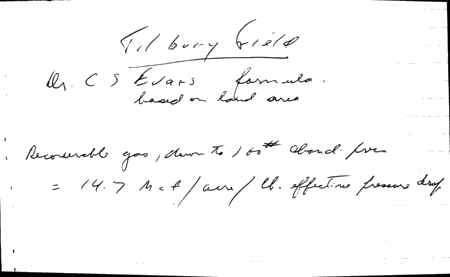 Tilbury Field
Dr. C S Evans formula.
based on land area
Recoverable gas, down to 100# aband. pres
= 14.7 Mcf/acre/lb. effective pressure drop